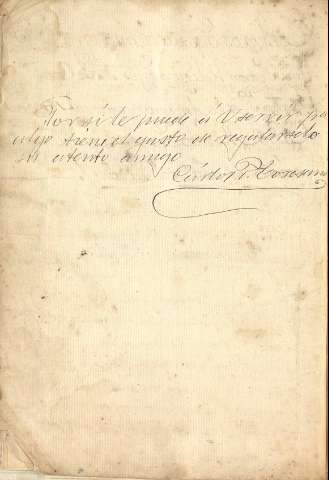 Por si le puede á V servir pa
algo tiene el gusto de regalarselo
su atento amigo
Cárlos